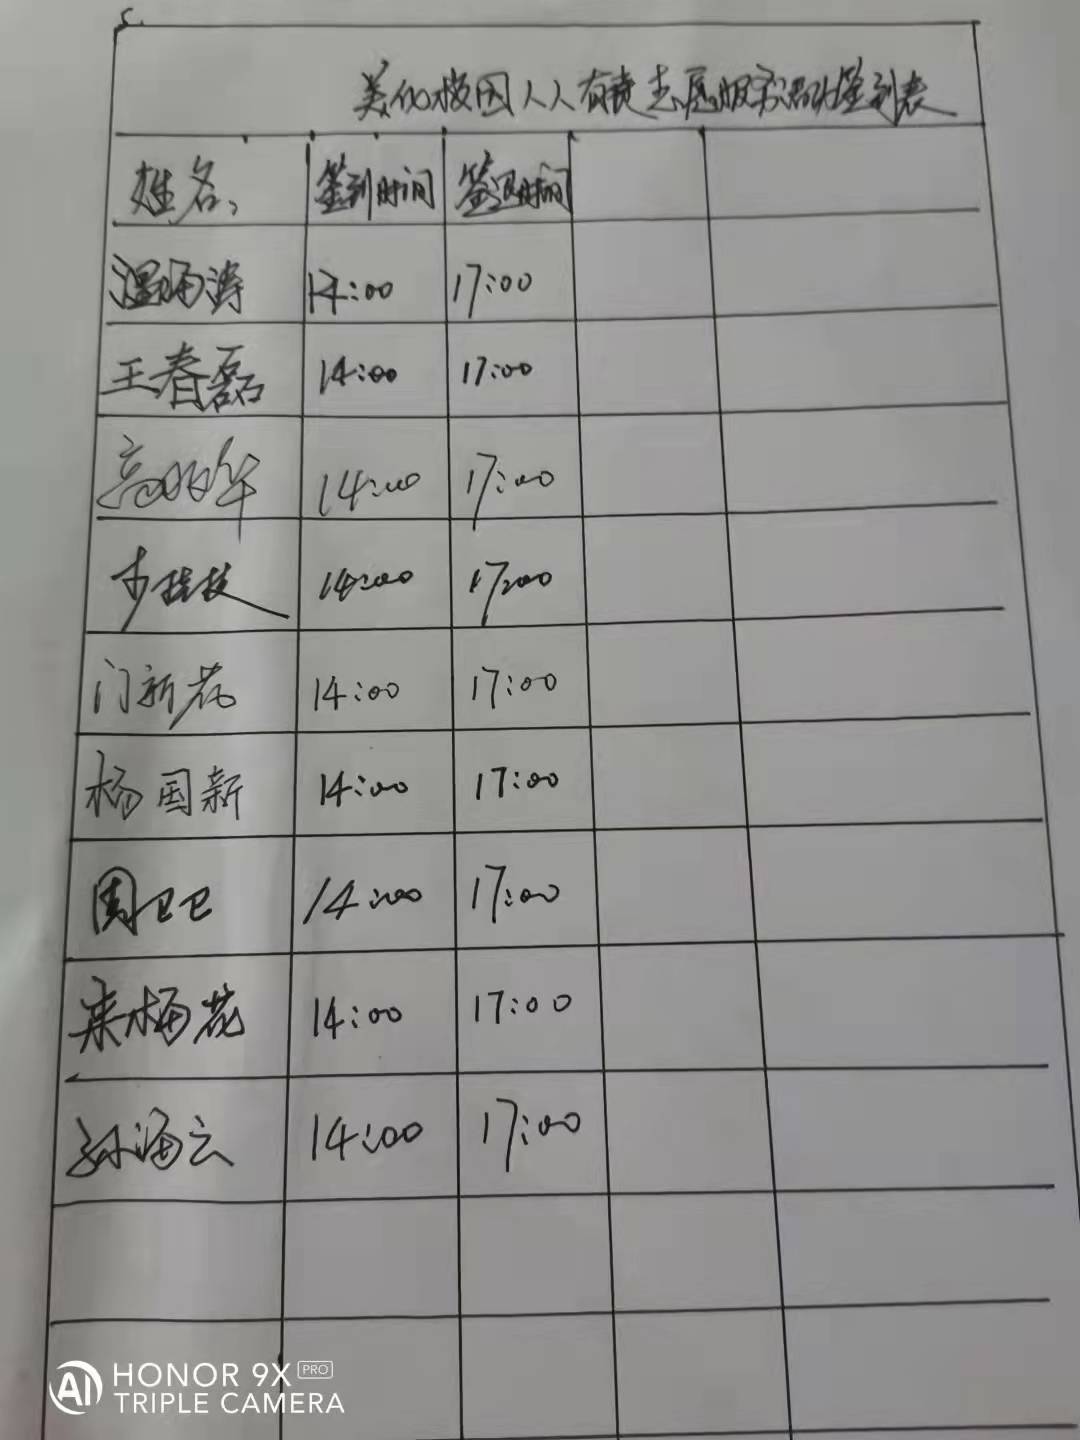 美化校园人人有责志愿服务活动签到表
姓名 签到时间 签退时间
温丽涛 14:00 17:00
王春磊 14:00 17:00
高明华 14:00 17:00
14:00 17:00
门新花 14:00 17:00
杨国新 14:00 17:00
周卫卫 14:00 17:00
来梅花 14:00 17:00
孙海云 14:00 17:00
HONOR 9X PRO
AI TRIPLE CAMERA